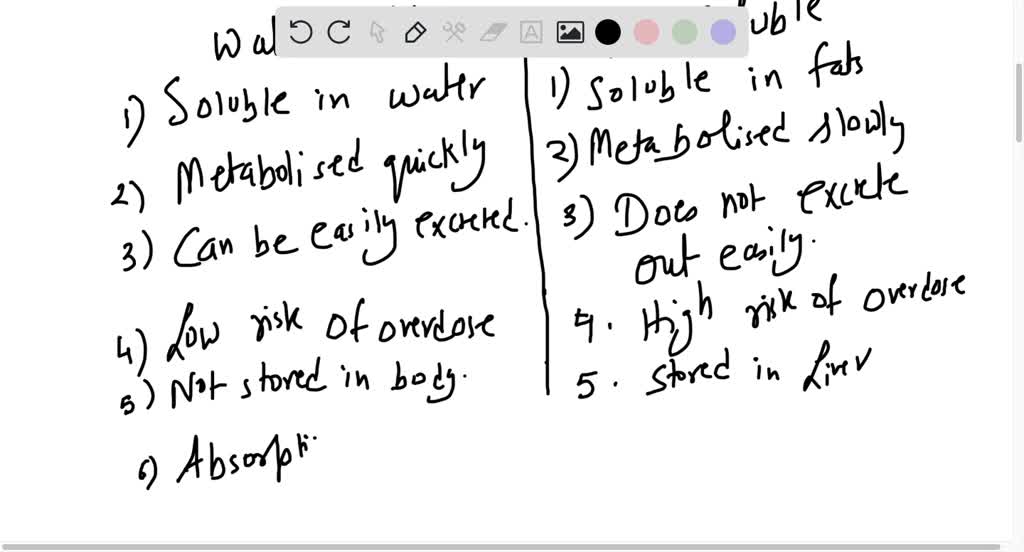 1) Soluble in water
2) Metabolised quickly
3) Can be easily excreted.
4) Low risk of overdose
5) Not stored in body.
6) Absorpti
1) Soluble in fats
2) Metabolised slowly
3) Does not excrete
out easily.
4. High risk of overdose
5. Stored in Liver